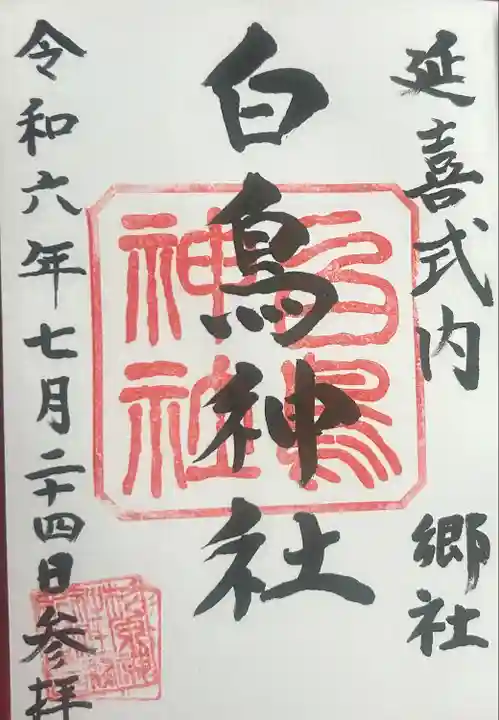 延喜式内 郷社
白鳥神社
白鳥神社
令和六年七月二十四日参拝